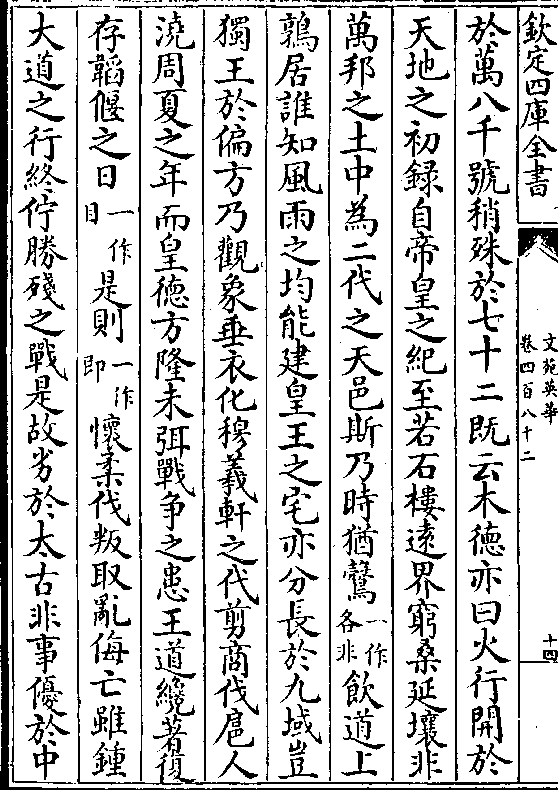 欽定四庫全書
文苑英華
卷四百八十二
十四
於萬八千號稍殊於七十二既云木德亦曰火行開於
天地之初録自帝皇之紀至若石樓逺界窮桑延壤非
萬邦之土中為二代之天邑斯乃時猶鷔一作各非飲道上
鶉居誰知風雨之均能建皇王之宅亦分長於九域豈
獨王於偏方乃觀象垂衣化穆羲軒之代剪商伐扈人
澆周夏之年而皇德方隆未弭戰爭之患王道纔著復
存韜偃之日一作目是則一作即懷柔伐叛取亂侮亡雖鍾
大道之行終佇勝殘之戰是故劣於太古非事優於中